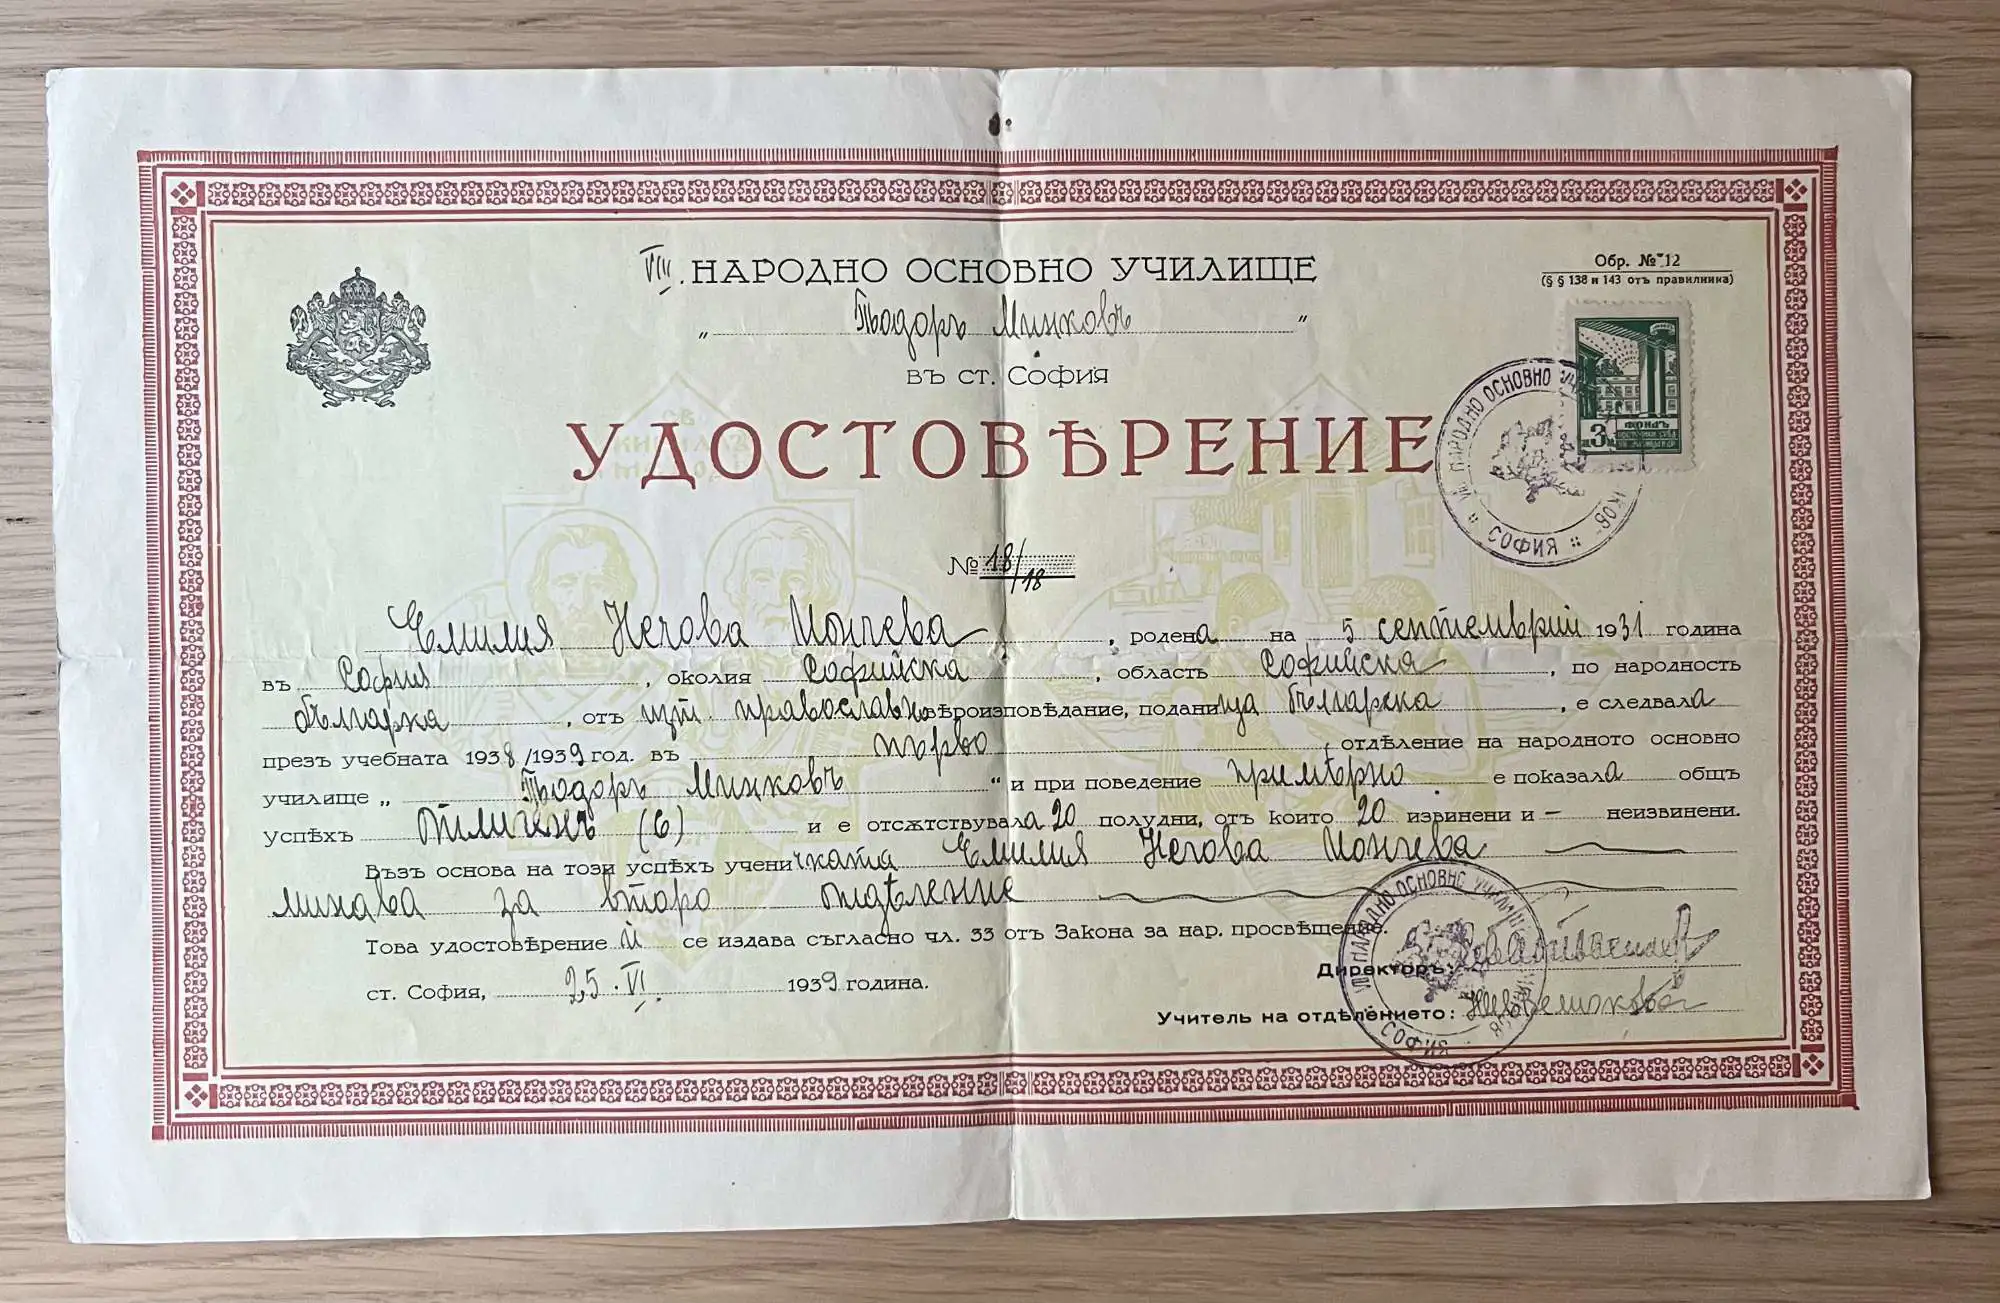 VIII. НАРОДНО ОСНОВНО УЧИЛИЩЕ
„ Тодоръ Минковъ "
въ ст. София
Обр. № 12
(§ § 138 и 143 отъ правилника)
УДОСТОВѢРЕНИЕ
ФОНДЪ
3
НАРОДНО ОСНОВНО
СОФИЯ
СВ.
КИРИЛЪ
№ 18/18
Емилия Нечова Мончева, родена на 5 септемврий 1931 година
въ София, околия Софийска, област Софийска, по народность
българка, отъ изт. православно вѣроизповѣдание, поданица българска, е следвала
презъ учебната 1938/1939 год. въ първо отдѣление на народното основно
училище „ Тодоръ Минковъ " и при поведение примѣрно е показала общъ
успѣхъ отличенъ (6) и е отсѫтствувала 20 полудни, отъ които 20 извинени и — неизвинени.
Възъ основа на този успѣхъ ученичката Емилия Нечова Мончева
минава за второ отдѣление
Това удостовѣрение ѝ се издава съгласно чл. 33 отъ Закона за нар. просвѣщение.
ст. София, 25. VI. 1939 година.
Директоръ:
Учитель на отдѣлението:
НАРОДНО ОСНОВНО УЧИЛИЩЕ
СОФИЯ